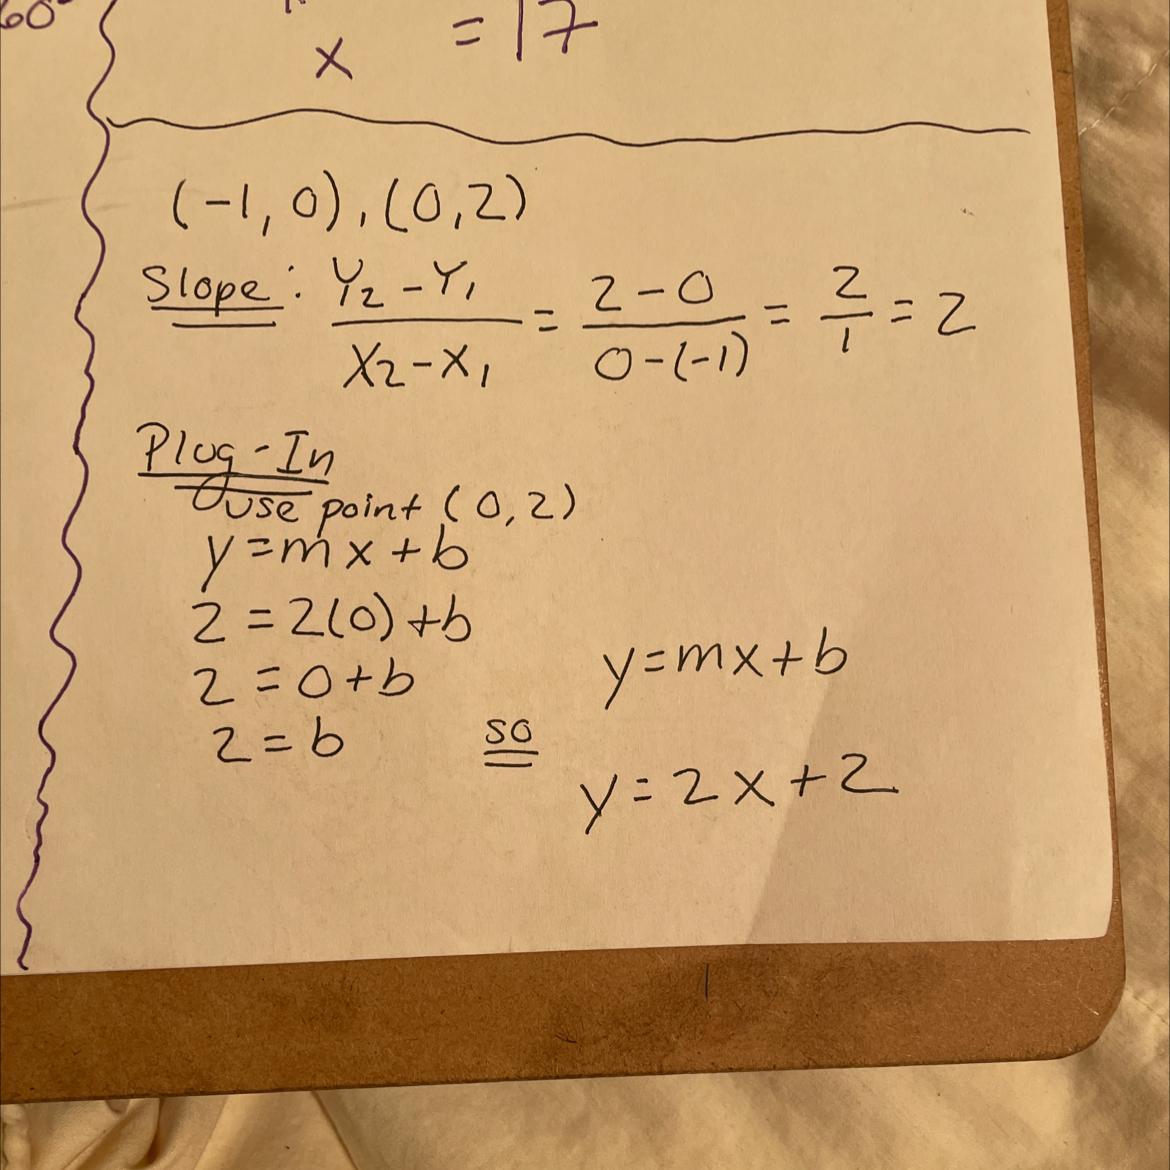 60°
x = 17
(-1, 0), (0, 2)
Slope: Y₂ - Y₁ / X₂ - X₁ = 2 - 0 / 0 - (-1) = 2 / 1 = 2
Plug-In
use point (0, 2)
y = mx + b
2 = 2(0) + b
2 = 0 + b
2 = b
so
y = mx + b
y = 2x + 2